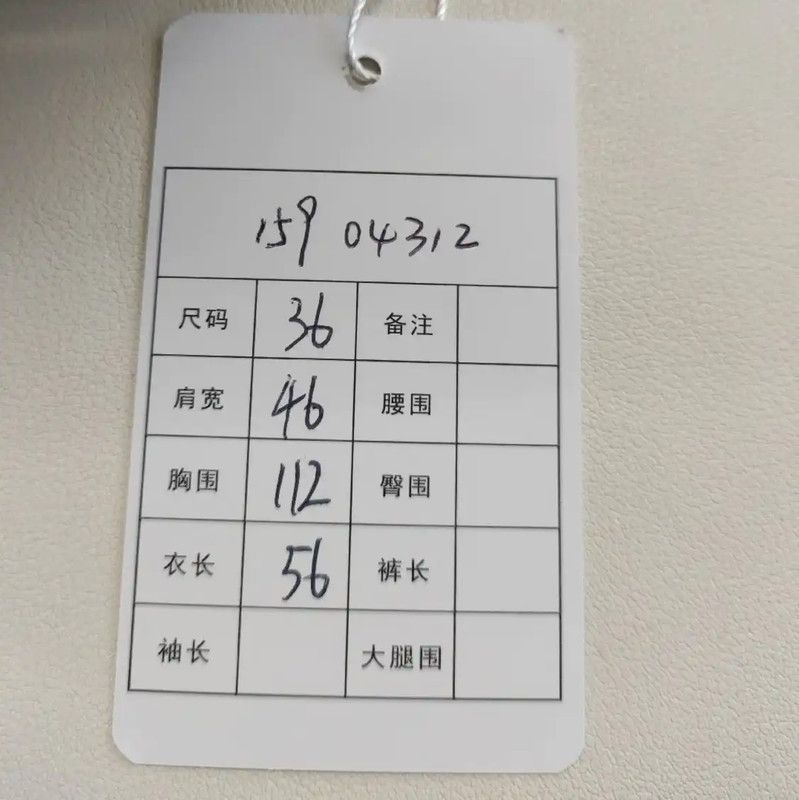 159 04312
尺码 36 备注
肩宽 46 腰围
胸围 112 臀围
衣长 56 裤长
袖长 大腿围